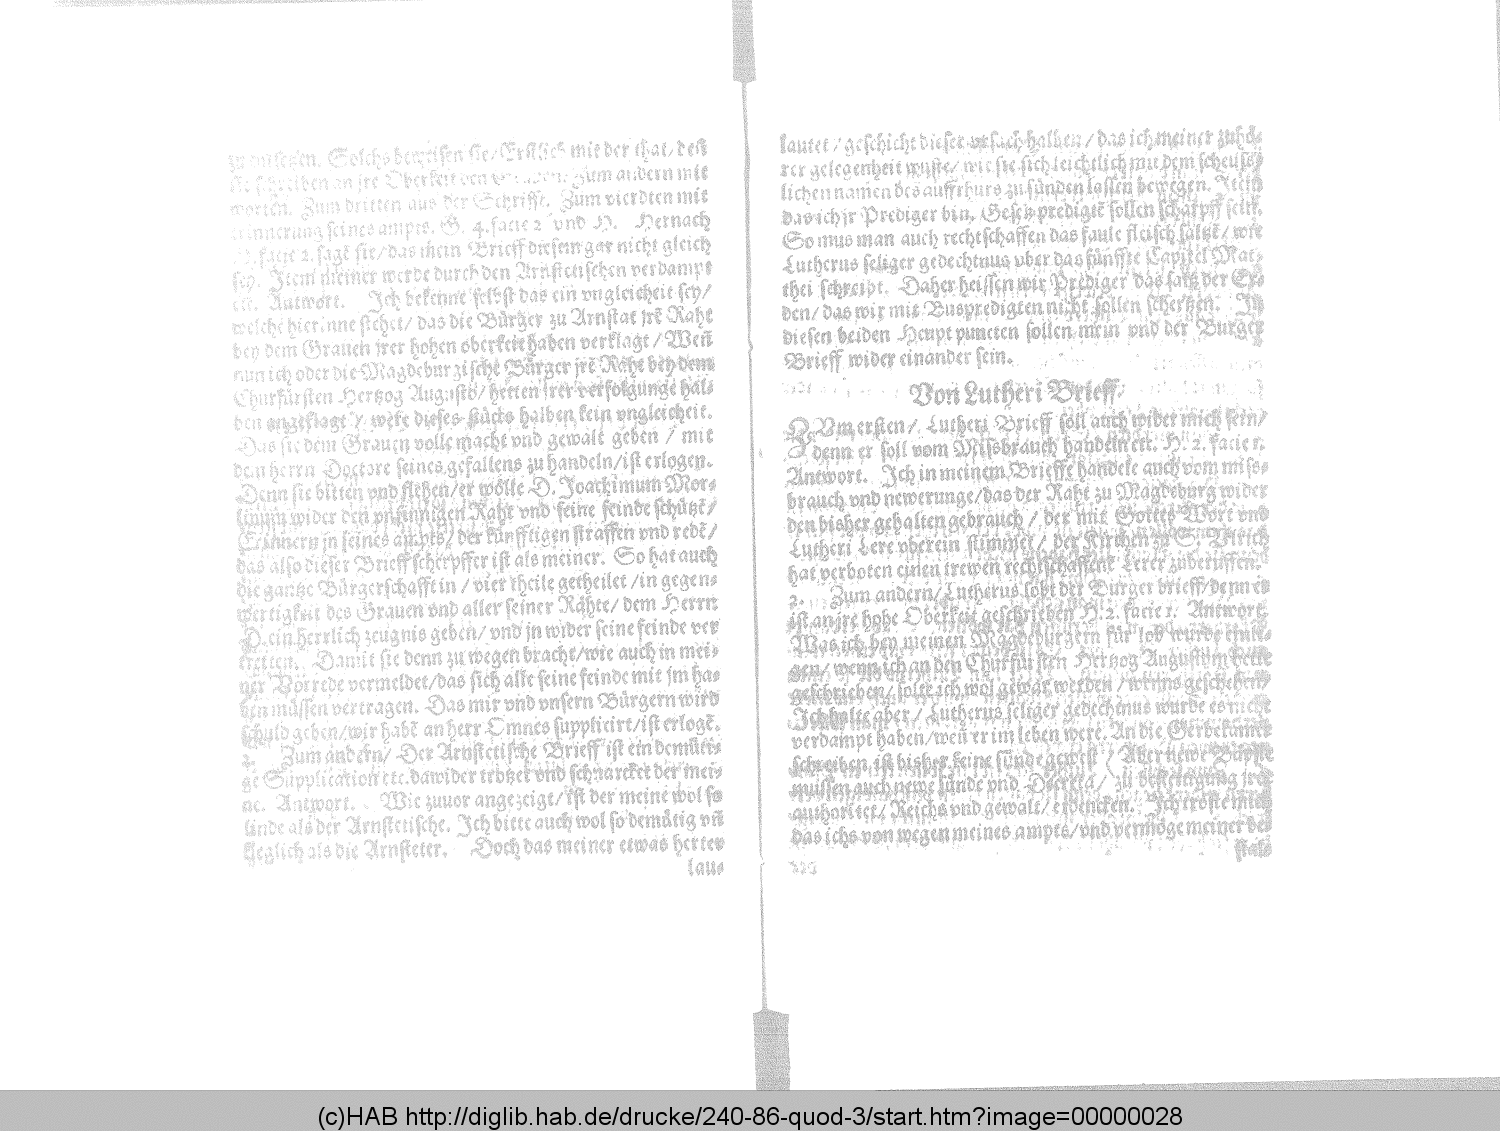 zu Solchs beweisen sie/ Erstlich mit der that/ deß
sie schreiben an jre Oberkeit Zum andern mit
worten. Zum dritten aus der Schrifft. Zum vierdten mit
erinnerung seines ampts. G. 4. facie 2 vnd H. Hernach
facie 2. sagt sie/ das mein Brieff diesem gar nicht gleich
sey. Item meiner werde durch den Arnstetischen verdampt
etc. Antwort. Ich bekenne selbst das ein vngleicheit sey/
welche hierinne stehet/ das die Bürger zu Arnstat jrē Raht
bey dem Grauen jrer hohen oberkeit haben verklagt/ Weñ
nun ich oder die Magdeburgische Bürger jrē Raht bey dem
Churfürsten Hertzog Augusto/ hetten jrer verfolgunge hal-
ben angeklagt/ were dieses stücks halben kein vngleicheit.
Das sie dem Grauen volle macht vnd gewalt geben / mit
den herrn Doctore seines gefallens zu handeln/ ist erlogen.
Denn sie bitten vnd flehen/ er wölle D. Joachimum Mor-
linum wider den vnsinnigen Raht vnd seine feinde schützē/
Erinnern jn seines ampts/ der künfftigen straffen vnd redē/
das also dieser Brieff scherpffer ist als meiner. So hat auch
die gantze Bürgerschafft in / vier theile getheilet /in gegen-
wertigkeit des Grauen vnd aller seiner Rähte/ dem Herrn
D. ein herrlich zeugnis geben/ vnd jn wider seine feinde ver
tretten. Damit sie denn zu wegen bracht/wie auch in mei-
ner Vorrede vermeldet/das sich alle seine feinde mit jm ha-
ben müssen vertragen. Das mir vnd vnsern Bürgern wird
schuld geben/wir habē an herr Omnes supplicirt/ist erlogē.
2. Zum andern/ Der Arnstetische Brieff ist ein demüti-
ge Supplication etc. dawider trotzet vnd schnarcket der mei-
ne. Antwort. Wie zuuor angezeigt/ ist der meine wol so
linde als der Arnstetische. Ich bitte auch wol so demütig vñ
kleglich als die Arnsteter. Doch das meiner etwas herter
lau-
lautet / geschicht dieser vrsach halben / das ich meiner zuhö-
rer gelegenheit wuste/ wie sie sich leichtlich mit dem scheus-
lichen namen des auffrhurs zu sünden lassen bewegen. Item
das ich jr Prediger bin. Gesetz predigtē sollen scharpff sein.
So mus man auch rechtschaffen das faule fleisch saltzē/ wie
Lutherus seliger gedechtnus vber das fünffte Capitel Mat-
thei schreibt. Daher heissen wir Prediger das saltz der Er-
den/ das wir mit Buspredigten nicht sollen schertzen. In
diesen beiden Heupt puncten sollen mein vnd der Bürger
Brieff wider einander sein.
Von Lutheri Brieff.
ZVm ersten/ Lutheri Brieff soll auch wider mich sein/
denn er soll vom Missbrauch handeln etc. H. 2. facie 1.
Antwort. Ich in meinem Brieffe handele auch vom miss-
brauch vnd newerunge/das der Raht zu Magdeburg wider
den bisher gehalten gebrauch / der mit Gottes Wort vnd
Lutheri Lere vberein stimmet/ der Kirchen zu S. Vlrich
hat verboten einen trewen rechtschaffenē Lerer zuberuffen.
2. Zum andern/ Lutherus lobt der Bürger brieff/ denn er
ist an jre hohe Oberkeit geschrieben H. 2. facie 1. Antwort.
Was ich bey meinen Magdeburgern für lob würde
gen/ wenn ich an den Churfürsten Hertzog Augustum hette
geschrieben/ solte ich wol gewar werden /
Ich halte aber/ Lutherus seliger gedechtnus würde es nicht
verdampt haben/ weñ er im leben were. An die
schreiben ist bisher keine sünde gewest / Aber newe Bäpste
müssen auch newe sünde vnd Decreta/ zu bestetigung jrer
authoritet/ Reichs vnd gewalt/ erdencken. Ich tröste mich
das ichs von wegen meines ampts/vnd vermöge meiner be-
stals